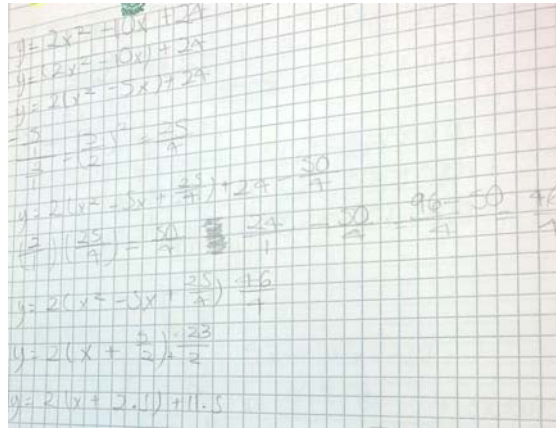 y = 2x² - 10x + 24
y = (2x² - 10x) + 24
y = 2(x² - 5x) + 24
-5/1 / 2/1 = (5/2)² = 25/4
y = 2(x² - 5x + 25/4) + 24 - 50/4
(2/1)(25/4) = 50/4 24/1 - 50/4 = 96 - 50/4 = 46/4
y = 2(x² - 5x + 25/4) + 46/4
y = 2(x + 5/2) + 23/2
y = 2(x + 2.5) + 11.5